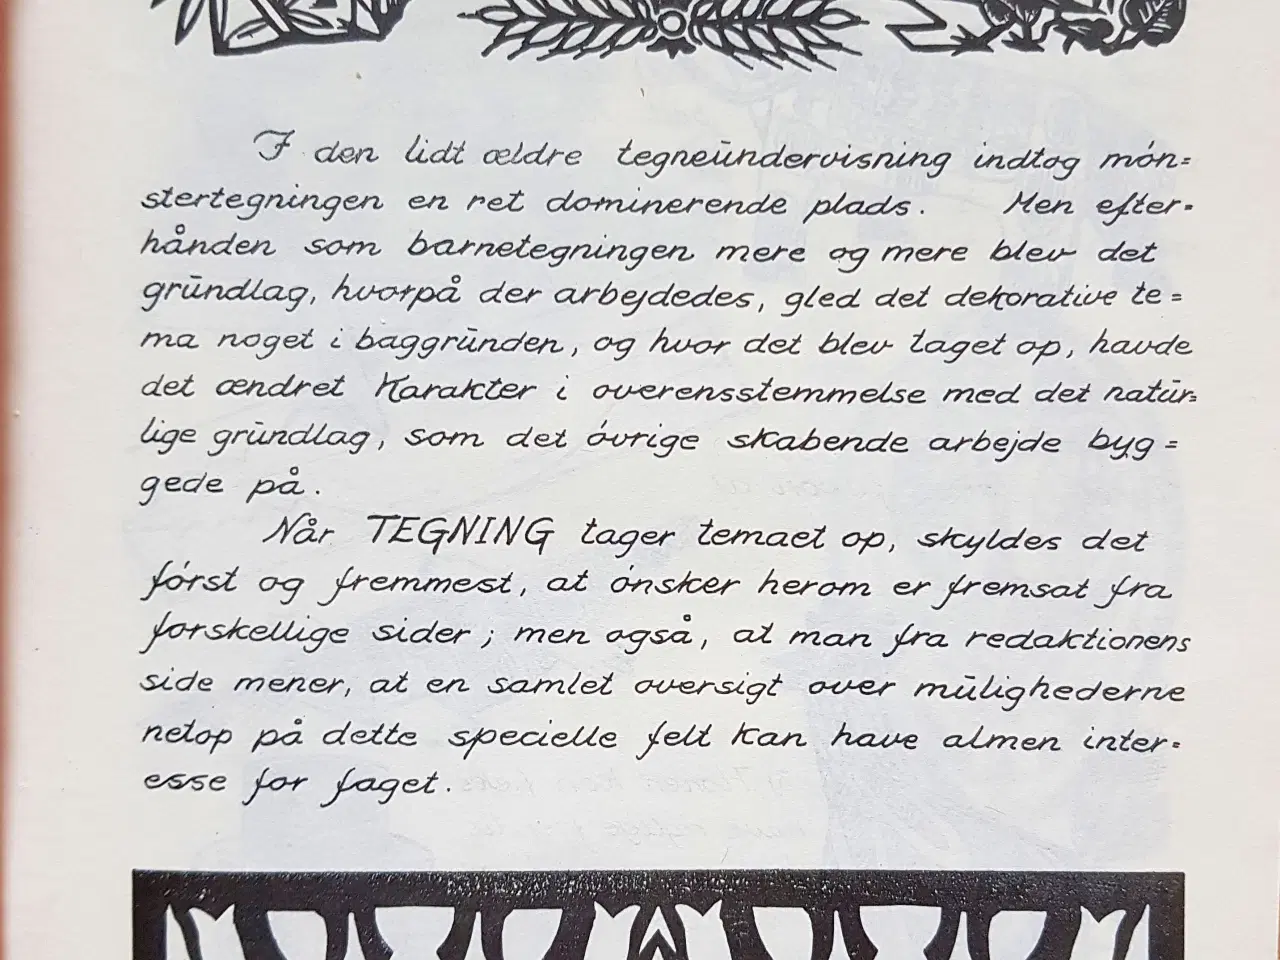 I den lidt ældre tegneundervisning indtog món=
stertegningen en ret dominerende plads. Men efter=
hånden som barnetegningen mere og mere blev det
grundlag, hvorpå der arbejdedes, gled det dekorative te=
ma noget i baggrunden, og hvor det blev taget op, havde
det ændret karakter i overensstemmelse med det natur=
lige grundlag, som det óvrige skabende arbejde byg=
gede på.
Når TEGNING tager temaet op, skyldes det
fórst og fremmest, at ónsker herom er fremsat fra
forskellige sider; men også, at man fra redaktionens
side mener, at en samlet oversigt over mulighederne
netop på dette specielle felt kan have almen inter=
esse for faget.